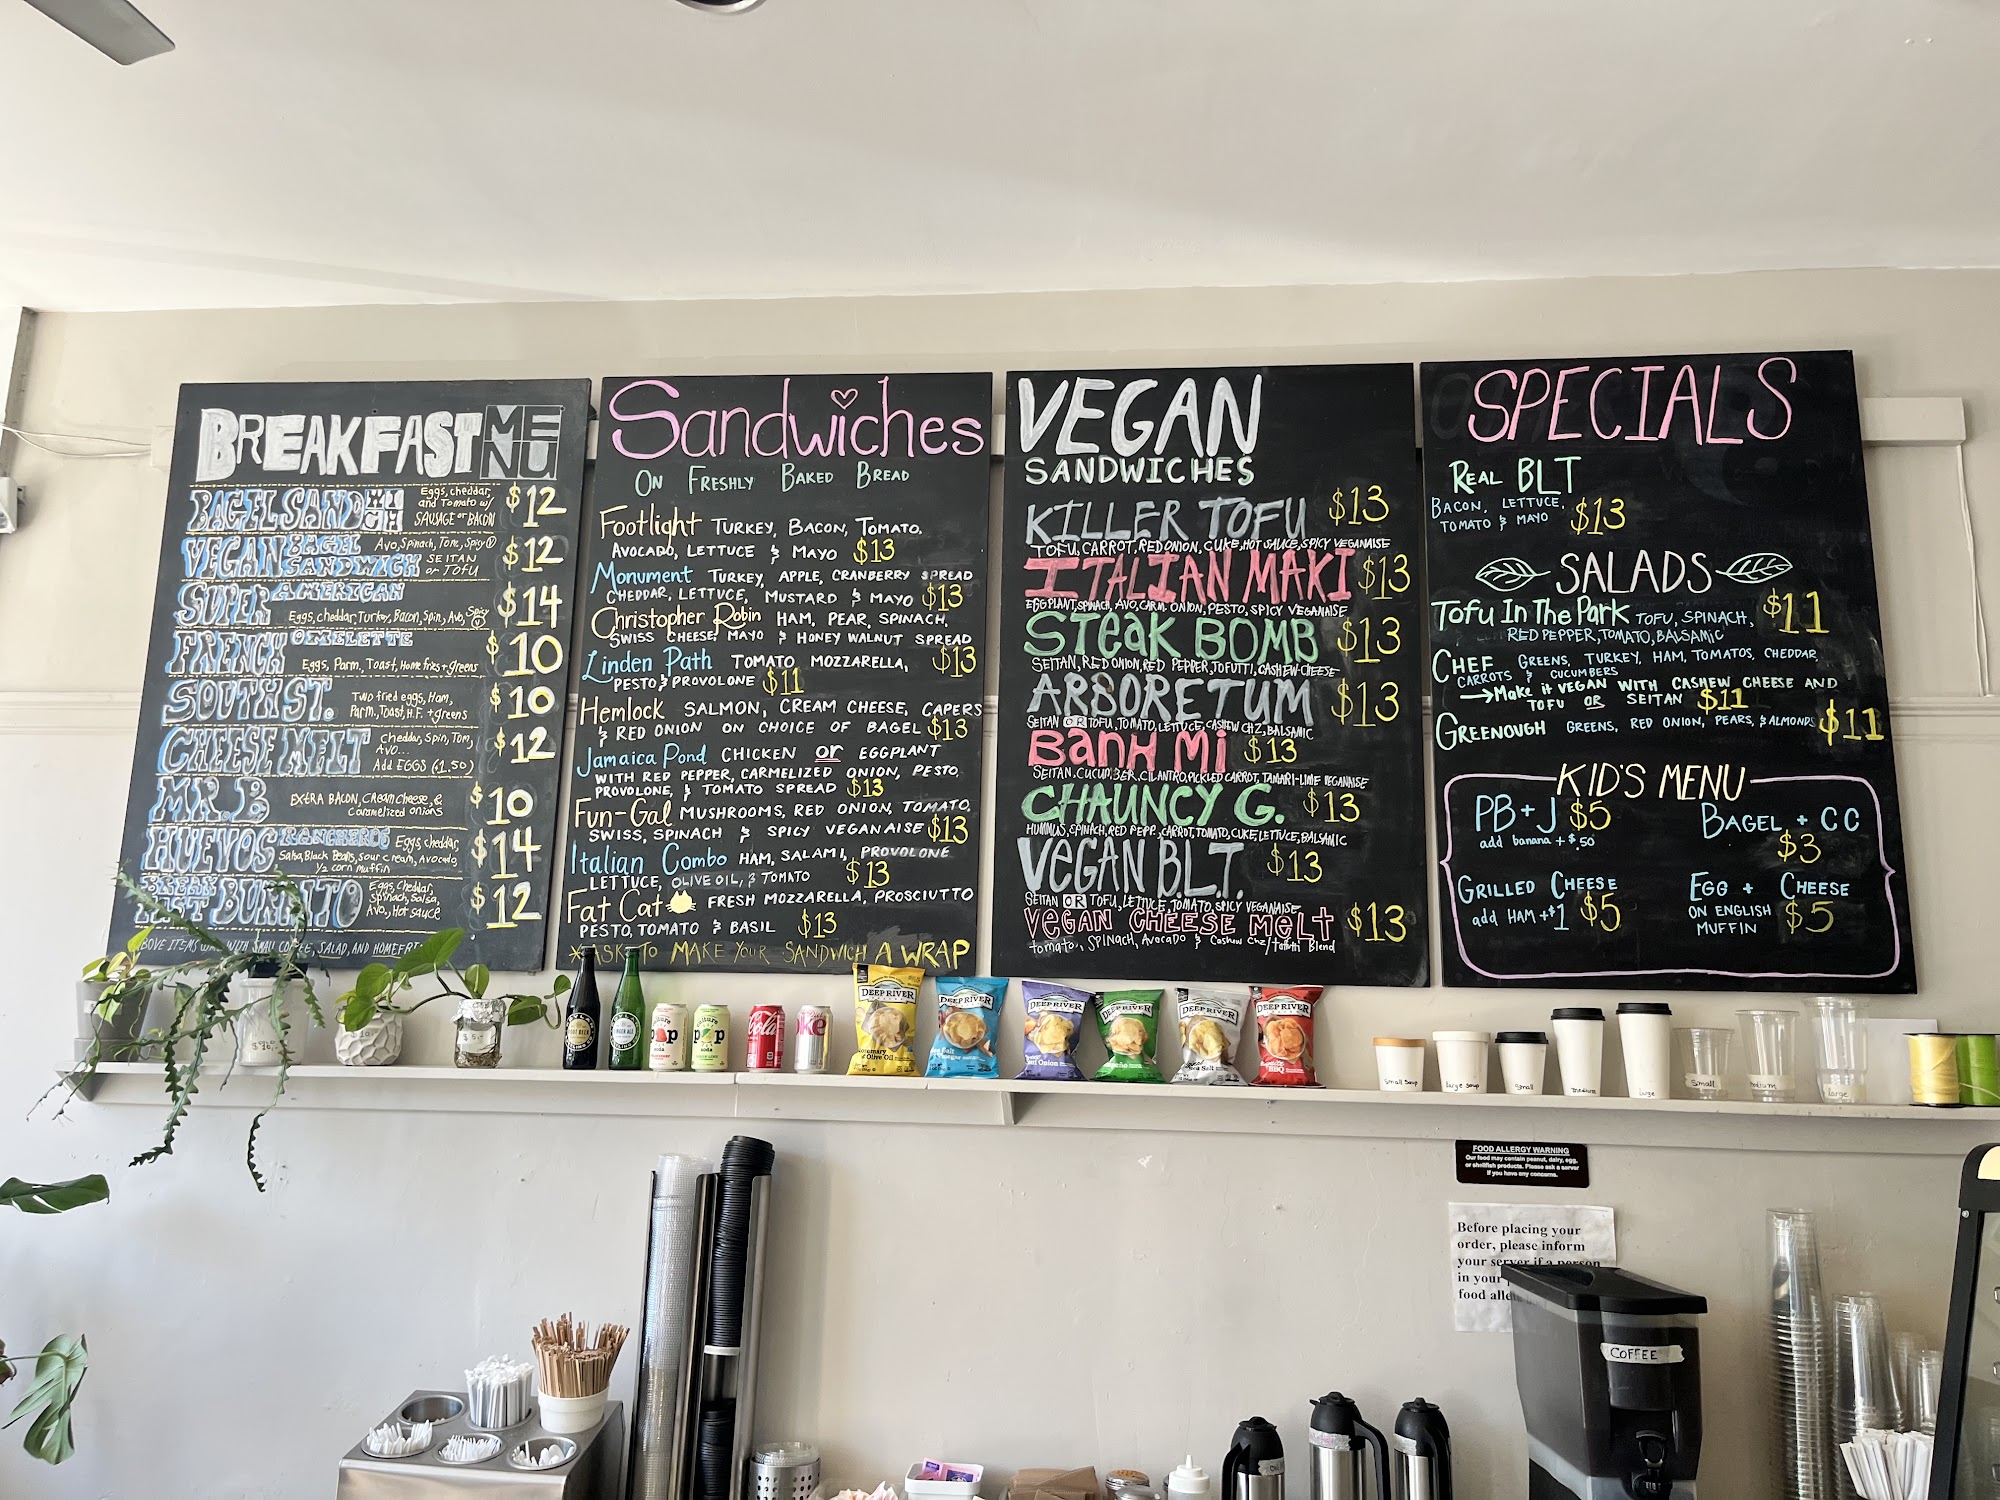 BREAKFAST MENU
BAGEL SANDWICH Eggs, cheddar, and Tomato w/ SAUSAGE or BACON $12
VEGAN BAGEL SANDWICH Avo, Spinach, Tom, Spicy V SEITAN or TOFU $12
SUPER AMERICAN Eggs, cheddar, Turkey, Bacon, Spin, Avo, Spicy V $14
FRENCH OMELETTE Eggs, Parm, Toast, Home fries + greens $10
SOUTH ST. TWO fried eggs, Ham, Parm., Toast, H.F. + greens $10
CHEESE MELT Cheddar, Spin, Tom, Avo... Add EGGS ($1.50) $12
MR. B EXTRA BACON, CREAM CHEESE, & Caramelized onions $10
HUEVOS RANCHEROS Eggs, cheddar, Salsa, Black Beans, sour cream, Avocado, 1/2 corn muffin $14
BURRITO Eggs, Cheddar, Spinach, Salsa, Avo., Hot sauce $12
SMALL COFFEE, SALAD, AND
Sandwiches
ON FRESHLY BAKED BREAD
Footlight TURKEY, BACON, TOMATO,
AVOCADO, LETTUCE & MAYO $13
Monument TURKEY, APPLE, CRANBERRY SPREAD
CHEDDAR, LETTUCE, MUSTARD & MAYO $13
Christopher Robin HAM, PEAR, SPINACH,
SWISS CHEESE, MAYO & HONEY WALNUT SPREAD
$13
Linden Path TOMATO MOZZARELLA,
PESTO & PROVOLONE $11
Hemlock SALMON, CREAM CHEESE, CAPERS
& RED ONION ON CHOICE OF BAGEL $13
Jamaica Pond CHICKEN or EGGPLANT
WITH RED PEPPER, CARMELIZED ONION, PESTO,
PROVOLONE, & TOMATO SPREAD $13
Fun-Gal MUSHROOMS, RED ONION, TOMATO,
SWISS, SPINACH & SPICY VEGANAISE $13
Italian Combo HAM, SALAMI, PROVOLONE
LETTUCE, OLIVE OIL, & TOMATO $13
Fat Cat FRESH MOZZARELLA, PROSCIUTTO
PESTO, TOMATO & BASIL $13
*ASK TO MAKE YOUR SANDWICH A WRAP
VEGAN
SANDWICHES
KILLER TOFU $13
TOFU, CARROT, RED ONION, CUKE, HOT SAUCE, SPICY VEGANAISE
ITALIAN MAKI $13
EGGPLANT, SPINACH, AVO, CARM. ONION, PESTO, SPICY VEGANAISE
STEAK BOMB $13
SEITAN, RED ONION, RED PEPPER, TOFUTTI, CASHEW CHEESE
ARBORETUM $13
SEITAN OR TOFU, TOMATO, LETTUCE, CASHEW CHZ, BALSAMIC
BANH MI $13
SEITAN, CUCUMBER, CILANTRO, PICKLED CARROT, TAMARI-LIME VEGANAISE
CHAUNCY G. $13
HUMMUS, SPINACH, RED PEPP., CARROT, TOMATO, CUKE, LETTUCE, BALSAMIC
VEGAN B.L.T. $13
SEITAN OR TOFU, LETTUCE, TOMATO, SPICY VEGANAISE
VEGAN CHEESE MELT $13
tomato, SPINACH, Avocado & Cashew Chz/tofutti Blend
SPECIALS
REAL BLT
BACON, LETTUCE,
TOMATO & MAYO $13
SALADS
TOFU IN THE PARK TOFU, SPINACH, $11
RED PEPPER, TOMATO, BALSAMIC
CHEF GREENS, TURKEY, HAM, TOMATOS, CHEDDAR,
CARROTS & CUCUMBERS
Make it VEGAN WITH CASHEW CHEESE AND
TOFU OR SEITAN $11
GREENOUGH GREENS, RED ONION, PEARS, & ALMONDS $11
KID'S MENU
PB+J $5
add banana + $.50
BAGEL + CC
$3
GRILLED CHEESE
add HAM +$1 $5
EGG + CHEESE
ON ENGLISH
MUFFIN $5
$5
culture
pop
soda
culture
pop
soda
Coca
Coke
DEEP RIVER
Rosemary
& Olive Oil
DEEP RIVER
Sea Salt
DEEP RIVER
Onion
DEEP RIVER
Jalapeño
DEEP RIVER
Sea Salt
DEEP RIVER
BBQ
Small Soup
Large Soup
Small
medium
large
Small
medium
large
FOOD ALLERGY WARNING
Our food may contain peanut, dairy, egg,
or shellfish products. Please ask a server
if you have any concerns.
Before placing your
order, please inform
your server if a person
in your
food
COFFEE